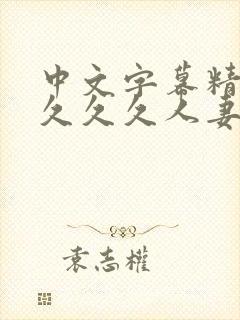 中文字幕精
久久久人妻
袁志權